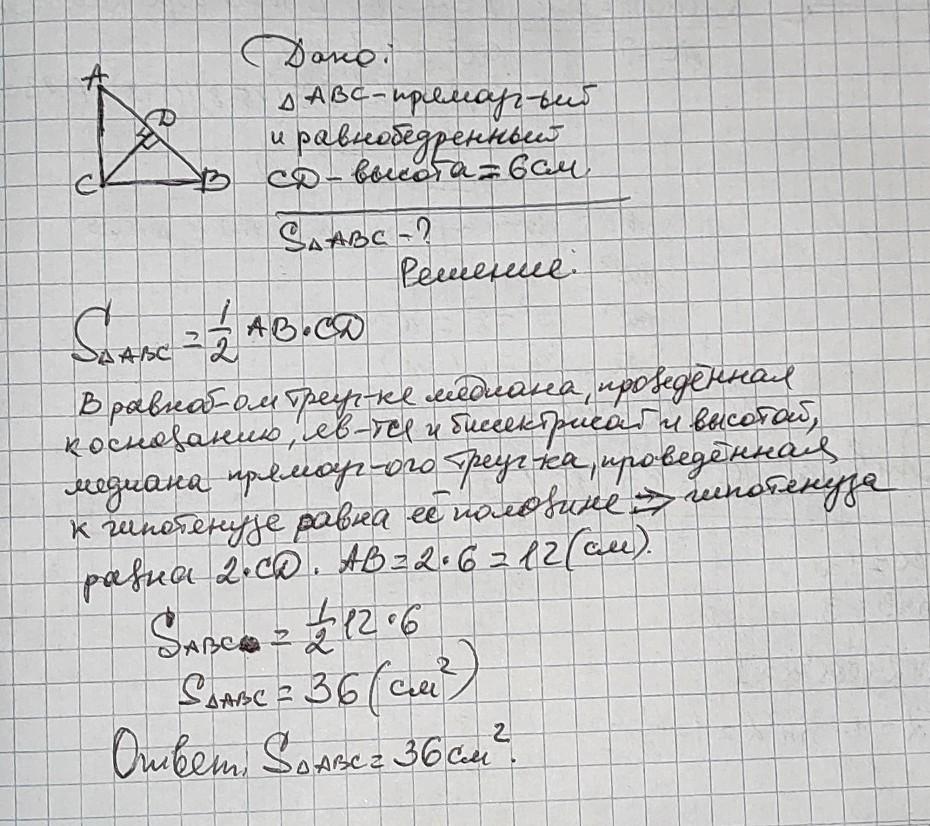 Дано:
A
△ABC-прямоуг-ый
D
и равнобедренный
C B
CD-высота=6см.
S△ABC-?
Решение:
S△ABC = 1/2 AB·CD
В равноб-ом треуг-ке медиана, проведённая
к основанию, яв-тся и биссектрисой и высотой,
медиана прямоуг-ого треуг-ка, проведённая
к гипотенузе равна её половине => гипотенуза
равна 2·CD. AB=2·6=12(см).
SABC = 1/2 12·6
S△ABC = 36(см²)
Ответ: S△ABC=36см².